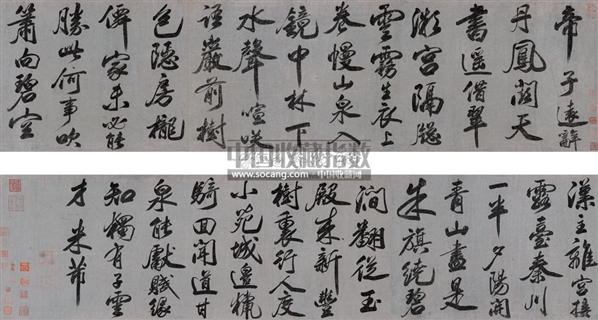 帝子遠辭
丹鳳闕天
書遥借翠
微宮隔牕
雲霧生衣上
卷幔山泉入
鏡中林下
水聲喧咲
語巖前樹
色隱房櫳
僊家未必能
勝此何事吹
簫向碧空
中国收藏指数
www.socang.com 中国收藏网
漢主離宮接
露臺秦川
一半夕陽開
青山盡是
朱旗繞碧
澗翻從玉
殿來新豐
樹裏行人度
小苑城邊獵
騎回聞道甘
泉能獻賦縣
知獨有子雲
才 米芾